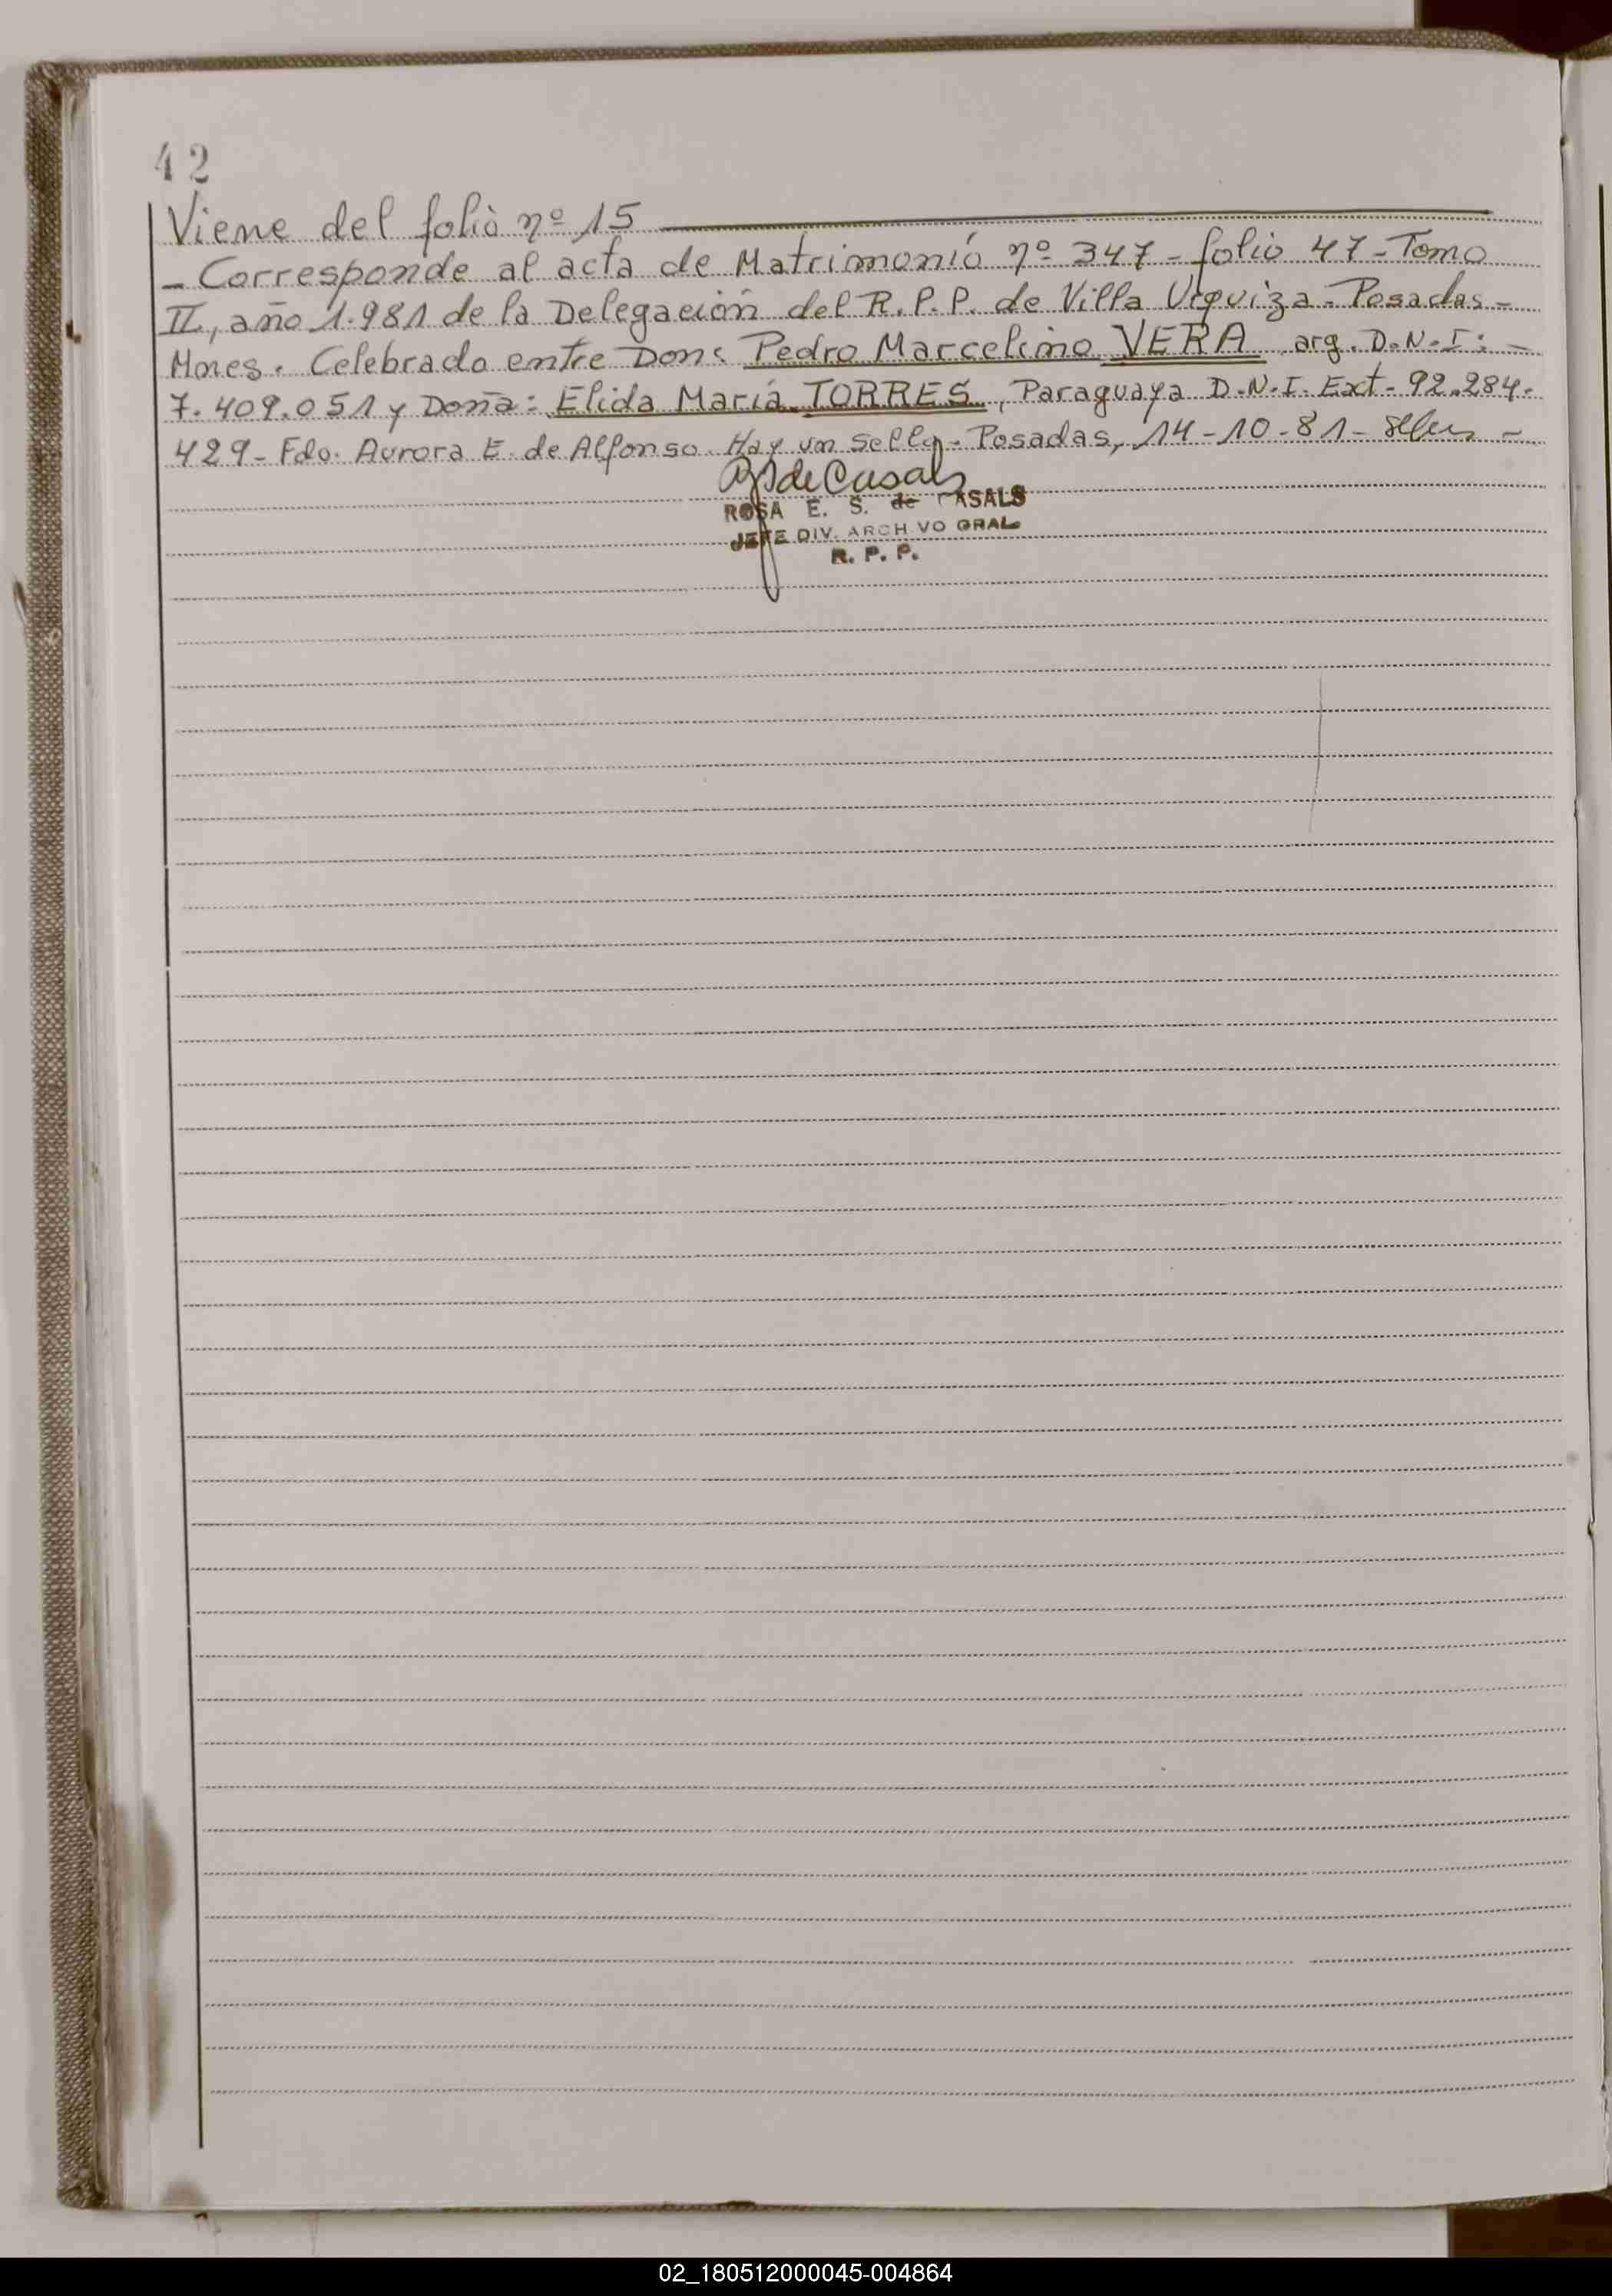 42
Viene del folio nº 15
- Corresponde al acta de Matrimonio nº 347 - folio 47 - Tomo
II, año 1.981 de la Delegación del R.P.P. de Villa Urquiza - Posadas -
Mnes. Celebrado entre Don: Pedro Marcelino VERA, arg. D.N.I: -
7.409.051 y Doña: Elida María TORRES, Paraguaya D.N.I. Ext. 92.284.
429 - Fdo. Aurora E. de Alfonso. Hay un sello - Posadas, 14-10-81 -
de Casals
ROSA E. S. de CASALS
JEFE DIV. ARCHIVO GRAL
R. P. P.
02_180512000045-004864